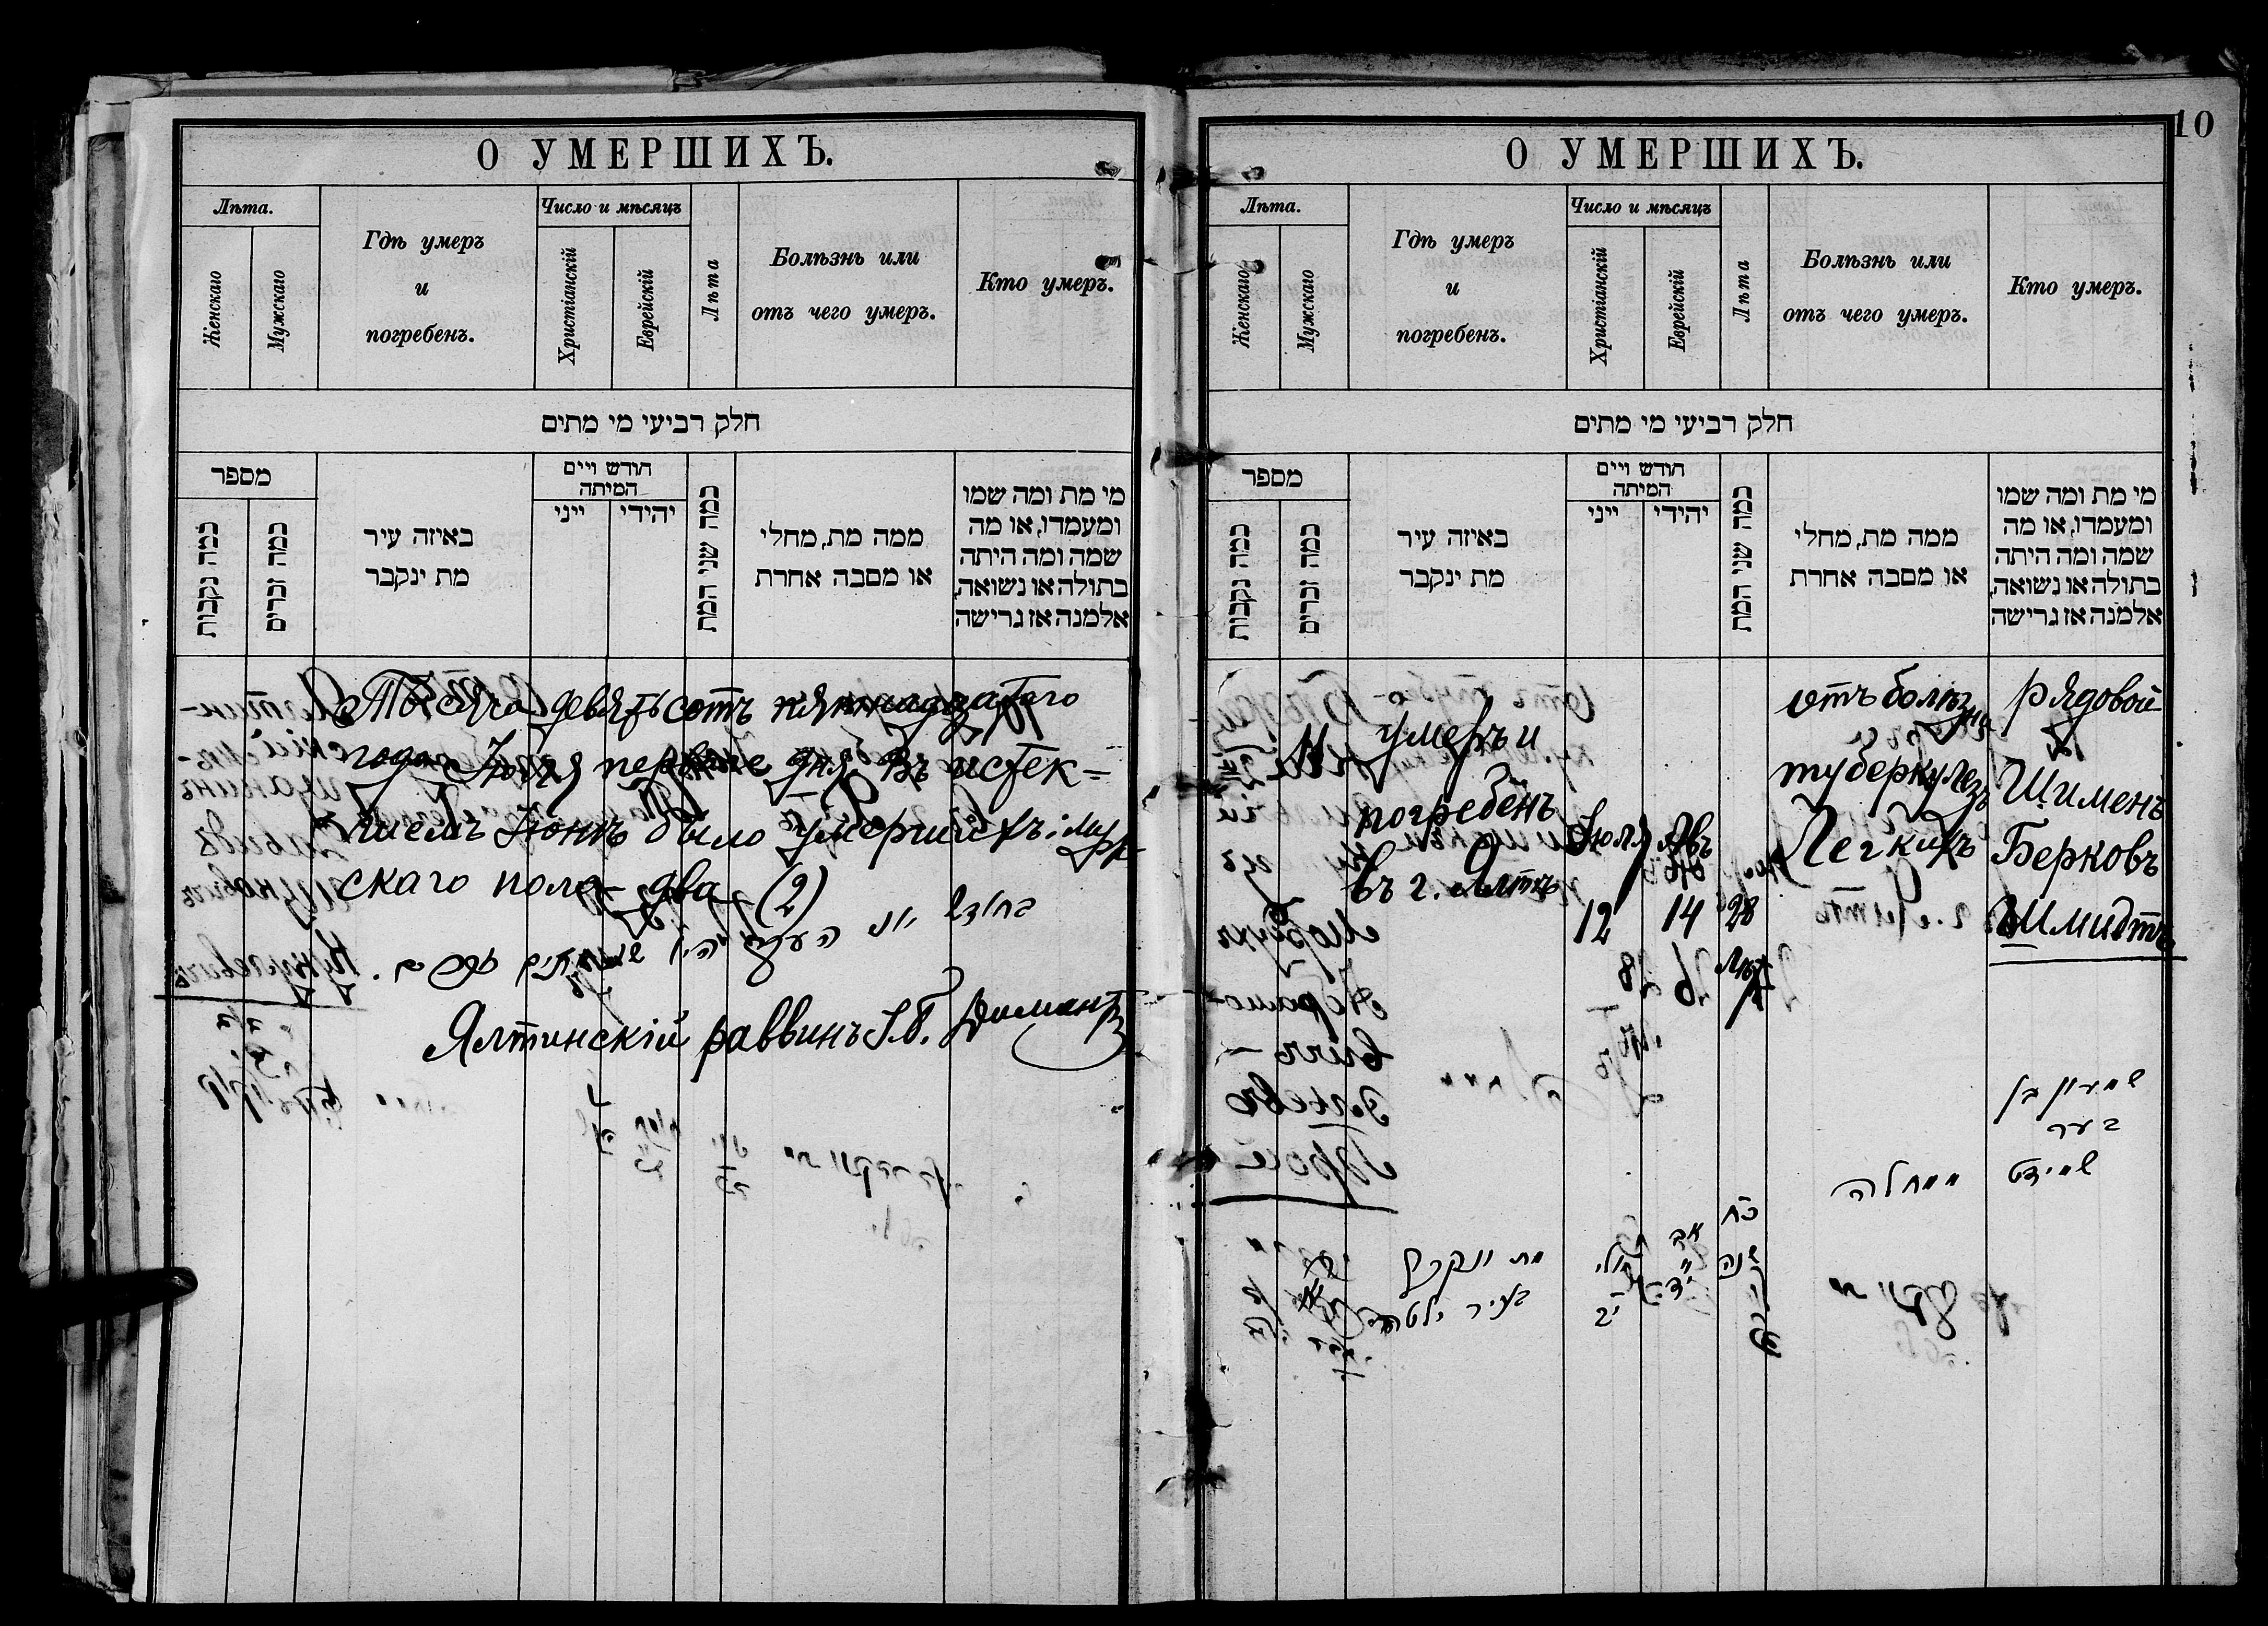 О УМЕРШИХЪ.
Лѣта.
Женскаго
Мужскаго
Гдѣ умеръ
и
погребенъ.
Число и мѣсяцъ
Христіанскій
Еврейскій
Лѣта
Болѣзнь или
отъ чего умеръ.
Кто умеръ.
חלק רביעי מי מתים
מספר
כמה נקבות
כמה זכרים
באיזה עיר
מת ינקבר
חודש ויים
המיתה
ייני
יהידי
כמה שני המת
ממה מת, מחלי
או מסבה אחרת
מי מת ומה שמו
ומעמדו, או מה
שמה ומה היתה
בתולה או נשואה,
אלמנה אז גרישה
Тысяча девятьсотъ пятнадцатаго
года Іюля перваго дня. Въ истек-
шемъ Іюнѣ было умершихъ: муж-
скаго пола два (2)
Ялтинскій раввинъ І.Б. Димантъ
10
О УМЕРШИХЪ.
Лѣта.
Женскаго
Мужскаго
Гдѣ умеръ
и
погребенъ.
Число и мѣсяцъ
Христіанскій
Еврейскій
Лѣта
Болѣзнь или
отъ чего умеръ.
Кто умеръ.
חלק רביעי מי מתים
מספר
כמה נקבות
כמה זכרים
באיזה עיר
מת ינקבר
חודש ויים
המיתה
ייני
יהידי
כמה שני המת
ממה מת, מחלי
או מסבה אחרת
מי מת ומה שמו
ומעמדו, או מה
שמה ומה היתה
בתולה או נשואה,
אלמנה אז גרישה
11
умеръ и
погребенъ
въ г. Ялтѣ
Іюля
12
Авъ
14
28
лѣт
отъ болѣзни
туберкулезъ
Легкихъ
рядовой
Шименъ
Берковъ
Шмидтъ
שמעון בן
בער
שמידט
ממחלה
כח
שנה
אב
יד
יולי
יב
מת ונקבר
בעיר ילטה